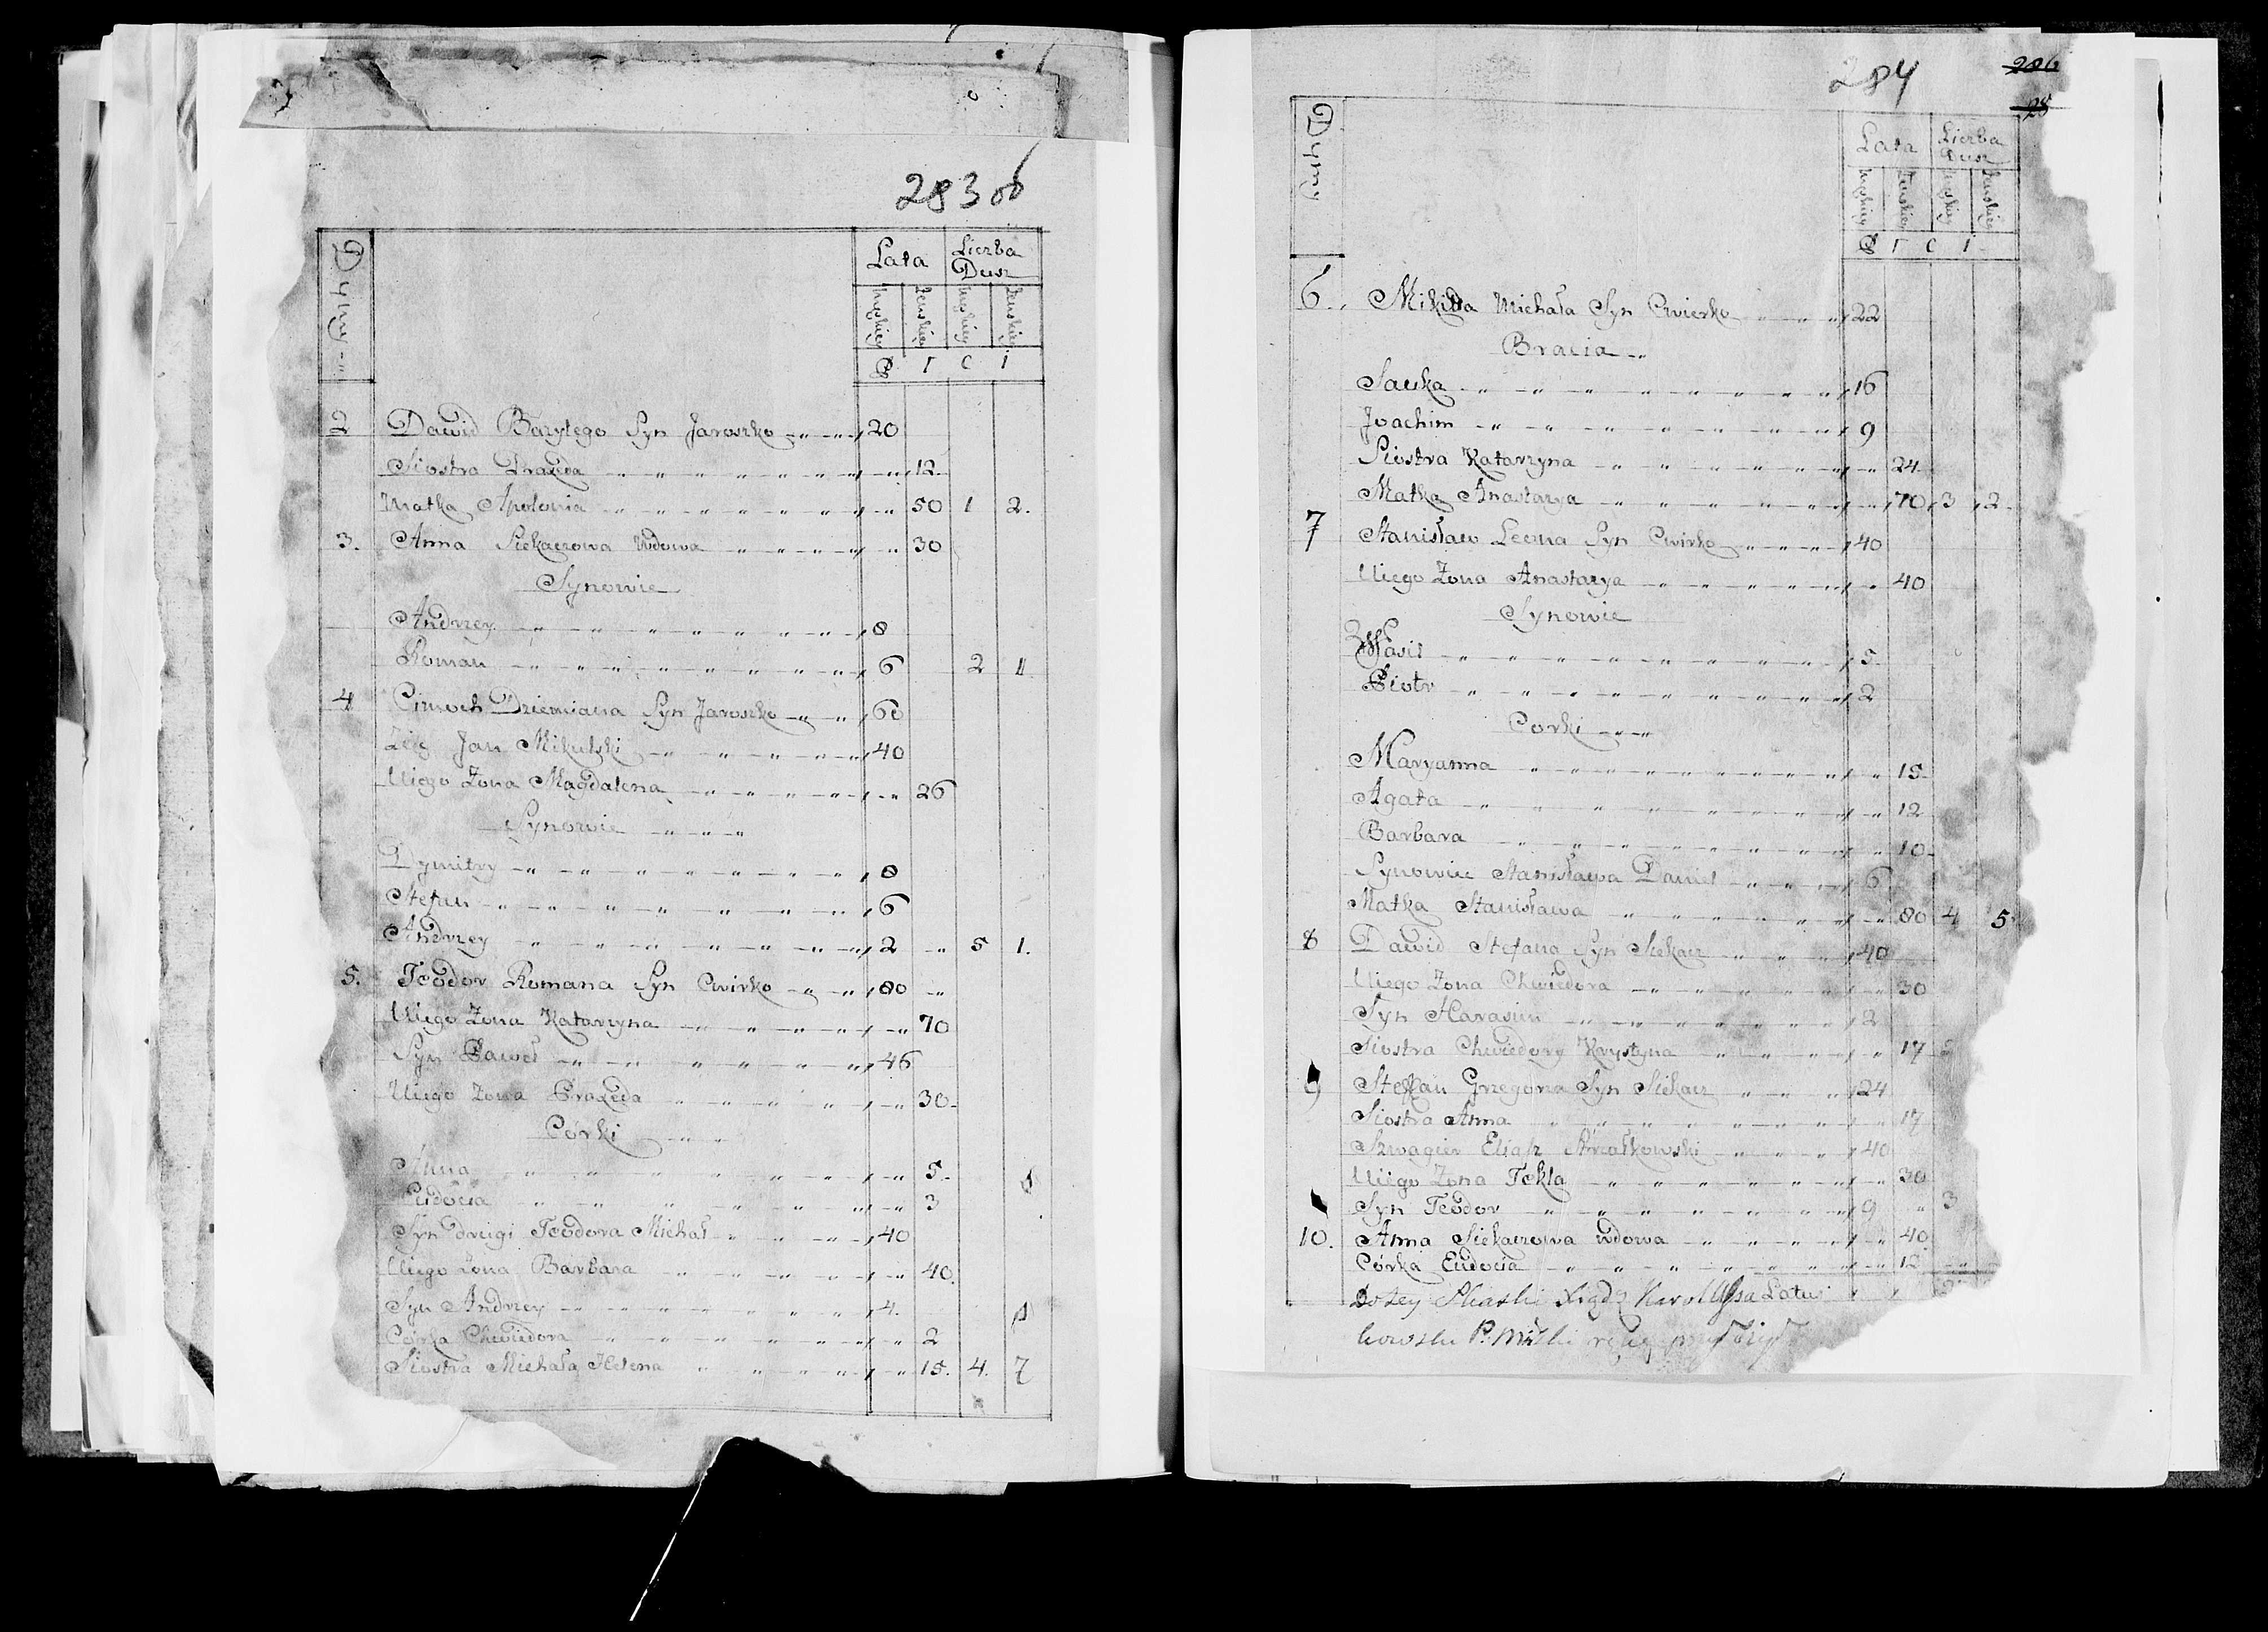 283 об
Dymy
Lata
Liczba Dusz
Męskiey Żeńskiey Męskiey Żeńskiey
2 Dawid Bazylego Syn Jaroszko 20
Siostra Praxeda 12
Matka Apolonia 50 1 2.
3. Anna Siekaczowa Wdowa 30
Synowie
Andrzey 8
Roman 6 2 1
4 Cimoch Dziemiana Syn Jaroszko 60
Zięć Jan Mikulski 40
Uiego Żona Magdalena 26
Synowie
Dymitry 8
Stefan 6
Andrzey 2 5 1.
5. Teodor Romana Syn Cwirko 80
Uiego Żona Katarzyna 70
Syn Paweł 46
Uiego Żona Praxeda 30
Córki
Anna 5
Eudocia 3
Syn drugi Teodora Michał 40
Uiego Żona Barbara 40
Syn Andrzey 4
Córka Chwiedora 2
Siostra Michała Helena 15. 4. 7
284
286
28
Dymy
Lata
Liczba Dusz
Męskiey Żeńskiey Męskiey Żeńskiey
6. Mikita Michała Syn Cwierko 22
Bracia
Sawka 16
Joachim 9
Siostra Katarzyna 24
Matka Anastazya 70 3 2
7 Stanisław Leona Syn Cwirko 40
Uiego Żona Anastazya 40
Synowie
Wasil 5
Piotr 2
Corki
Maryanna 15
Agata 12
Barbara 10
Synowiec Stanisława Daniel 6
Matka Stanisława 80 4 5
8 Dawid Stefana Syn Siekacz 40
Uiego Żona Chwiedora 30
Syn Harasim 2
Siostra Chwiedory Krystyna 17
9 Steffan Grzegorza Syn Siekacz 24
Siostra Anna 17
Szwagier Eliasz 40
Uiego Żona Tekla 30
Syn Teodor 9 3
10. Anna Siekaczowa wdowa 40
Córka Eudocia 12
Xiądz Karol Latus